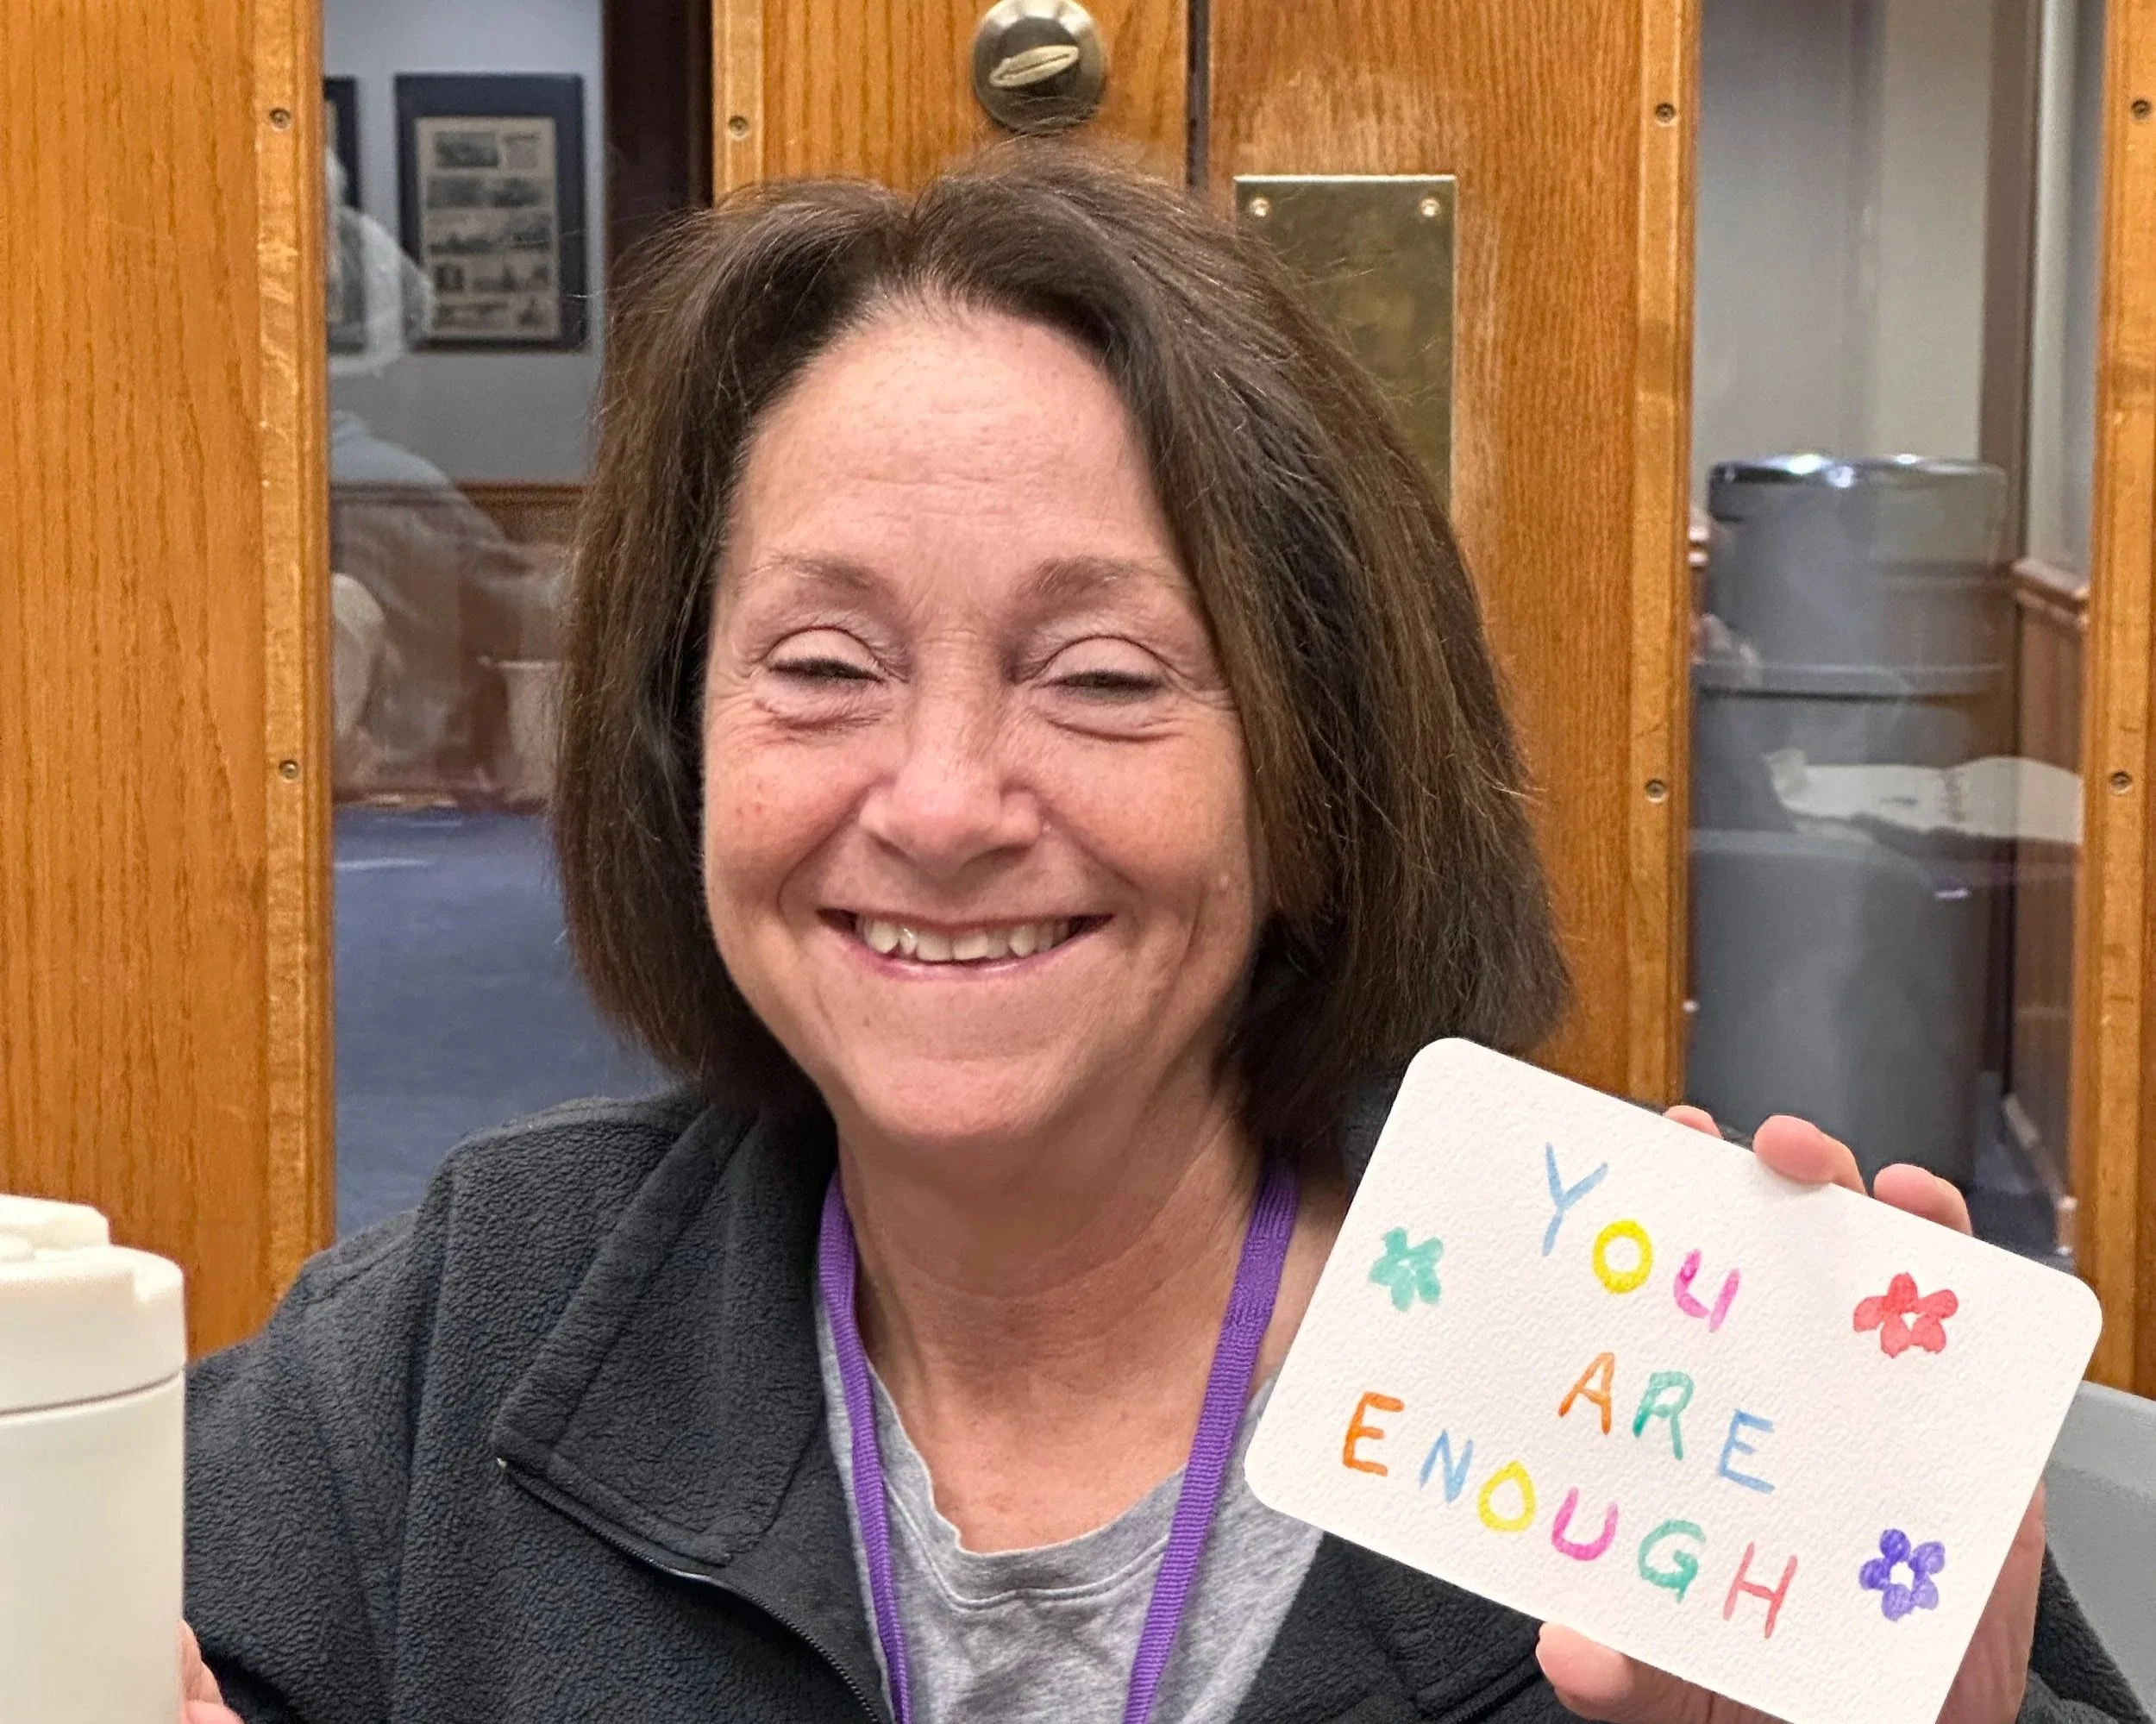 YOU
ARE
ENOUGH